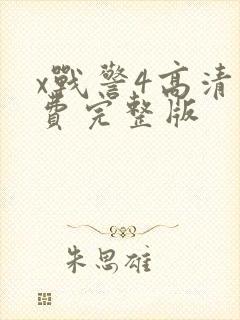 x戰警4高清
費完整版
朱思雄